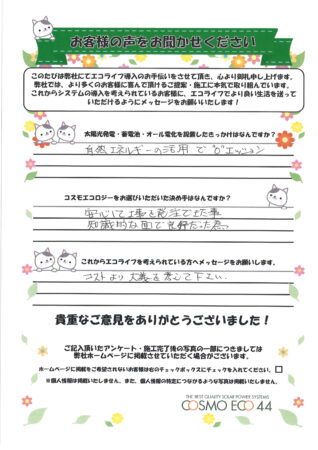 お客様の声をお聞かせください
このたびは弊社にてエコライフ導入のお手伝いをさせて頂き、心より御礼申し上げます。
弊社では、より多くのお客様に喜んで頂けるご提案・施工に本気で取り組んでいます。
これからシステムの導入を考えられているお客様に、エコライフでより良い生活を送って
いただけるようにメッセージをお願いいたします！
太陽光発電・蓄電池・オール電化を設置したきっかけはなんですか？
自然エネルギーの活用で"0"エミッション
コスモエコロジーをお選びいただいた決め手はなんですか？
安心して工事を発注できた事
知識的な面で良好だった為
これからエコライフを考えられている方へメッセージをお願いします。
コストより大義を考えて下さい.
貴重なご意見をありがとうございました！
ご記入頂いたアンケート・施工完了後の写真の一部につきましては
弊社ホームページに掲載させていただく場合がございます。
ホームページに掲載をご希望されないお客様は右のチェックボックスにチェックを入れてください。
※個人情報は掲載いたしません、また、個人情報の特定につながるような写真は掲載いたしません。
THE BEST QUALITY SOLAR POWER SYSTEMS
COSMO ECO 44